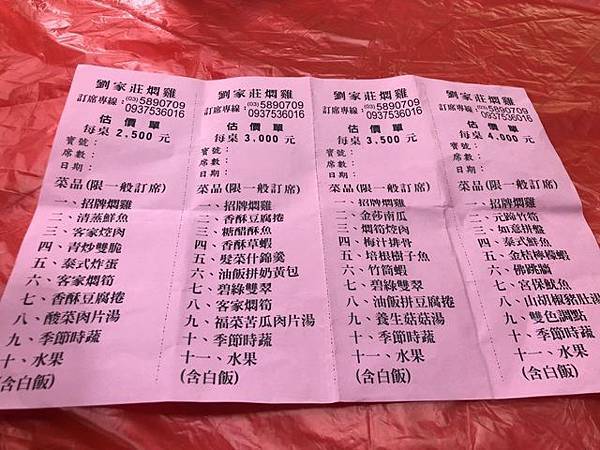 劉家莊燜雞
訂席專線：(03)5890709
0937536016
估價單
每桌 2,500 元
寶號：
席數：
日期：
菜品(限一般訂席)
一、招牌燜雞
二、清蒸鮮魚
三、客家焢肉
四、青炒雙脆
五、泰式炸蛋
六、客家燜筍
七、香酥豆腐捲
八、酸菜肉片湯
九、季節時蔬
十、水果
(含白飯)
劉家莊燜雞
訂席專線：(03)5890709
0937536016
估價單
每桌 3,000 元
寶號：
席數：
日期：
菜品(限一般訂席)
一、招牌燜雞
二、香酥豆腐捲
三、糖醋酥魚
四、香酥草蝦
五、髮菜什錦羹
六、油飯拼奶黃包
七、碧綠雙翠
八、客家燜筍
九、福菜苦瓜肉片湯
十、季節時蔬
十一、水果
(含白飯)
劉家莊燜雞
訂席專線：(03)5890709
0937536016
估價單
每桌 3,500 元
寶號：
席數：
日期：
菜品(限一般訂席)
一、招牌燜雞
二、金莎南瓜
三、燜筍焢肉
四、梅汁排骨
五、培根樹子魚
六、竹筒蝦
七、碧綠雙翠
八、油飯拼豆腐捲
九、養生菇菇湯
十、季節時蔬
十一、水果
(含白飯)
劉家莊燜雞
訂席專線：(03)5890709
0937536016
估價單
每桌 4,000 元
寶號：
席數：
日期：
菜品(限一般訂席)
一、招牌燜雞
二、元蹄竹筍
三、如意拼盤
四、泰式鱈魚
五、金桔檸檬蝦
六、佛跳牆
七、宮保魷魚
八、山胡椒豬肚湯
九、雙色調點
十、季節時蔬
十一、水果
(含白飯)